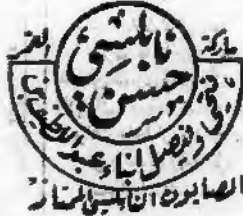 ماركة
نابلسي
حسن
فيصل أبناء عبد اللطيف
الصابون النابلسي الممتاز